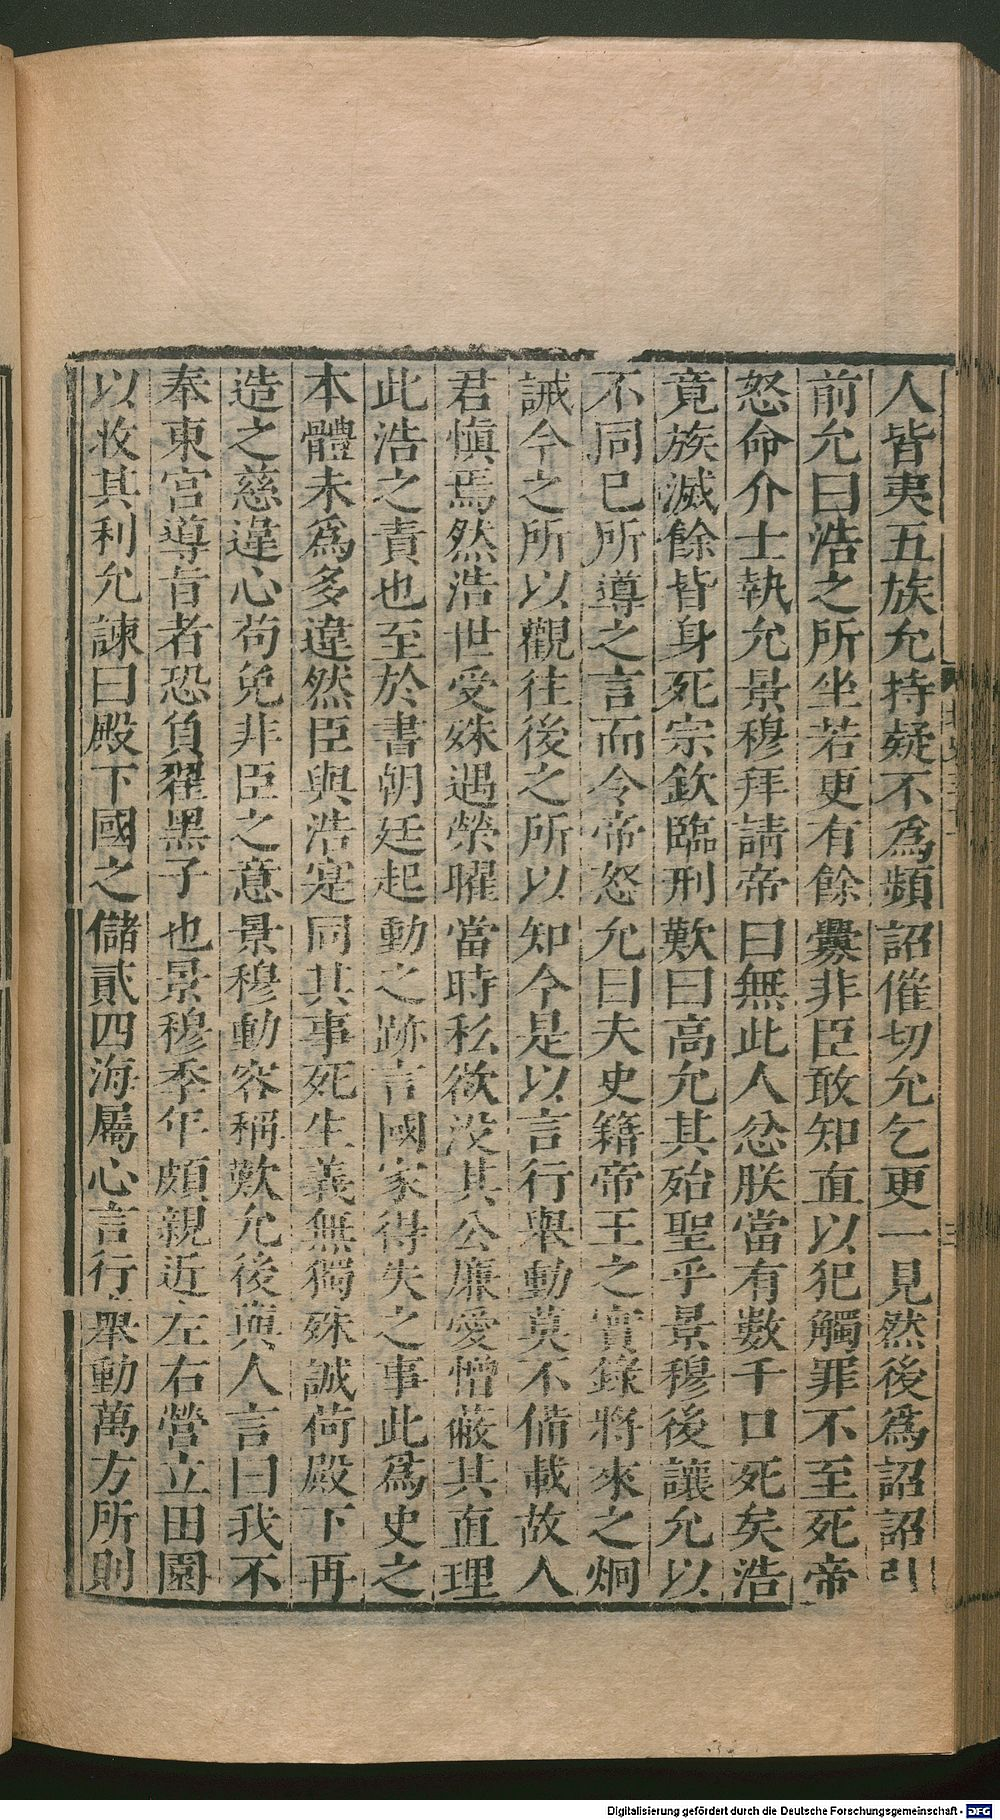 人皆夷五族允持疑不爲頻詔催切允乞更一見然後爲詔詔引
前允曰浩之所坐若更有餘釁非臣敢知直以犯觸罪不至死帝
怒命介士執允景穆拜請帝曰無此人忿朕當有數千口死矣浩
竟族滅餘皆身死宗欽臨刑歎曰高允其殆聖乎景穆後讓允以
不同已所導之言而令帝怒允曰夫史籍帝王之實錄將來之炯
誡今之所以觀往後之所以知今是以言行舉動莫不備載故人
君愼焉然浩世受殊遇榮曜當時私欲没其公廉愛憎蔽其直理
此浩之責也至於書朝廷起動之跡言國家得失之事此爲史之
本體未爲多違然臣與浩寔同其事死生義無獨殊誠荷殿下再
造之慈違心苟免非臣之意景穆動容稱歎允後與人言曰我不
奉東宮導旨者恐負翟黑子也景穆季年頗親近左右營立田園
以收其利允諫曰殿下國之儲貳四海屬心言行舉動萬方所則
Digitalisierung gefördert durch die Deutsche Forschungsgemeinschaft - DFG